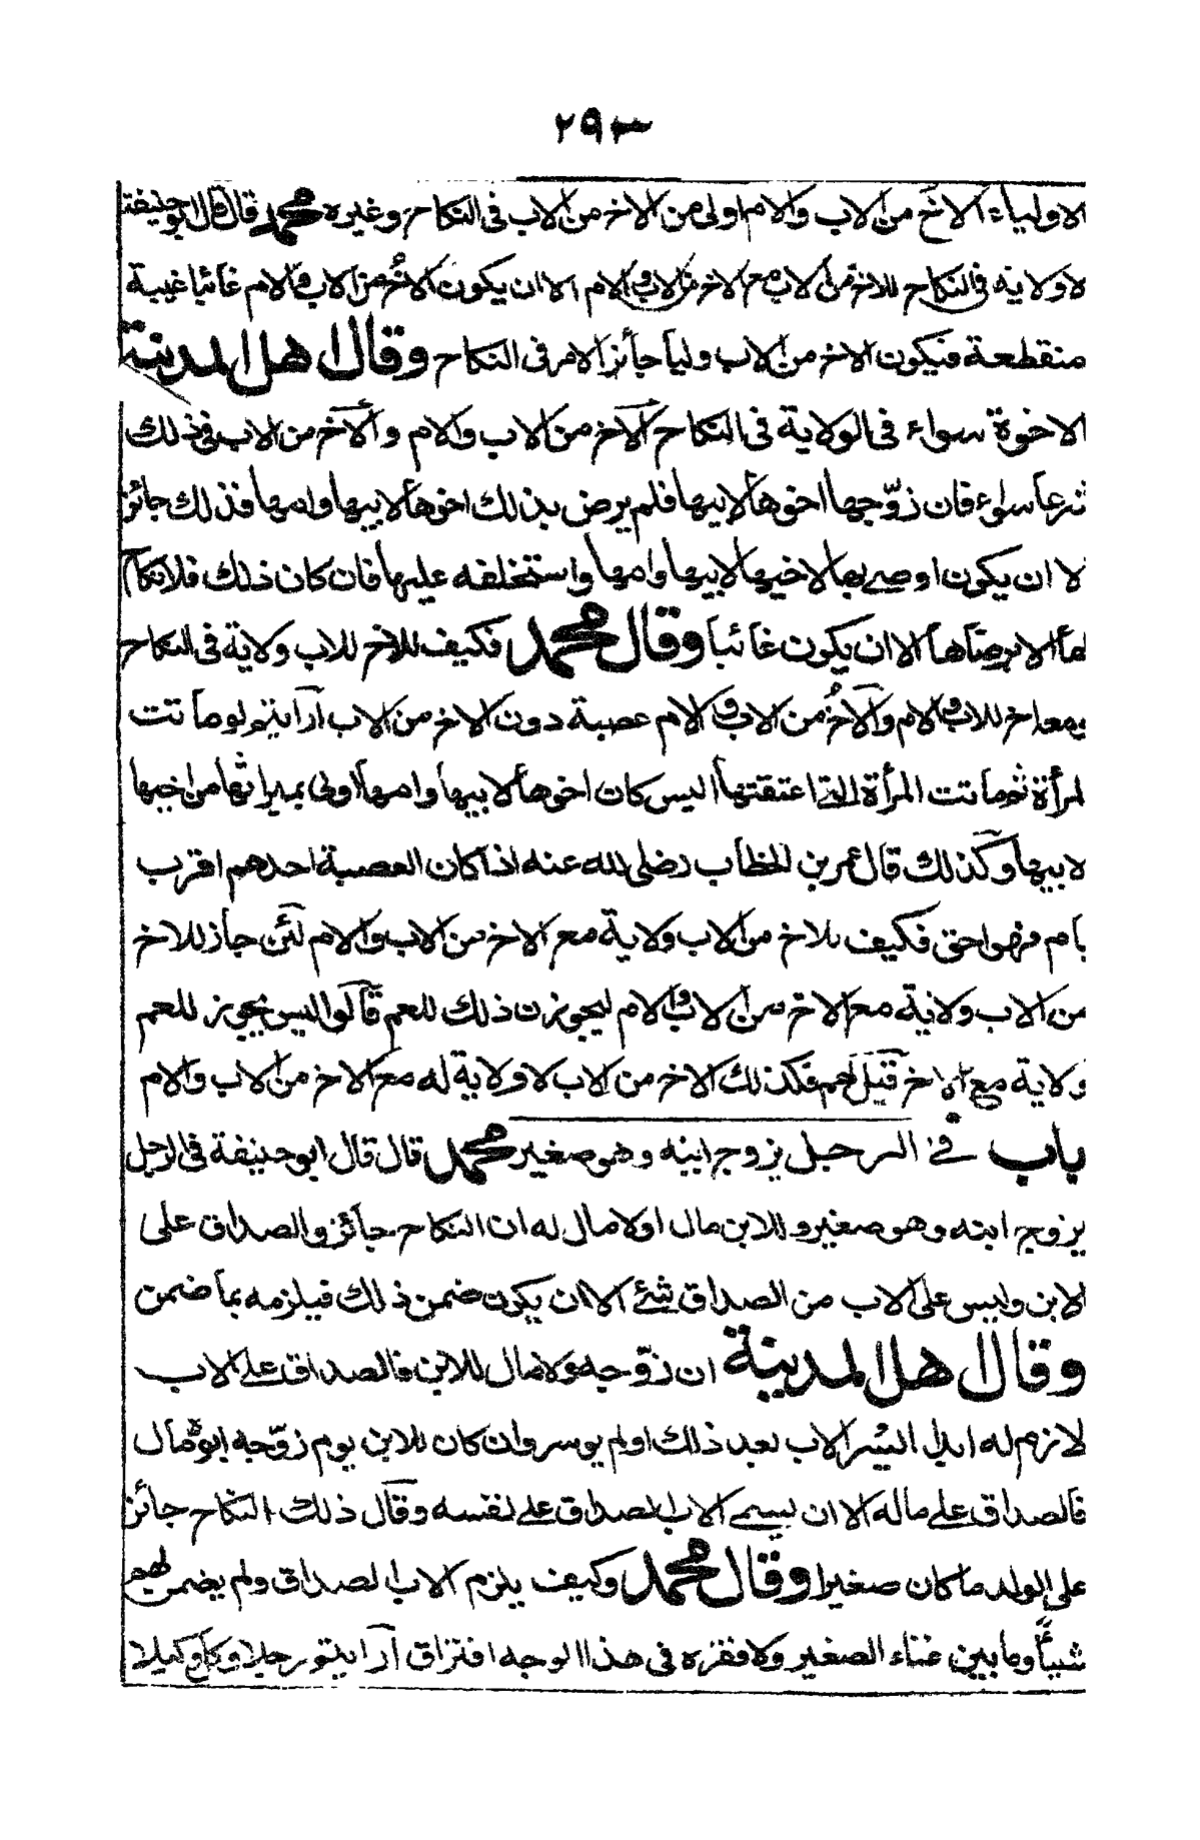 ٢٩٣
الاولياء الاخ من الاب والام اولى من الاخ من الاب فى النكاح وغيره محمد قال قال ابو حنيفة
لا ولاية فى النكاح للاخ من الاب مع الاخ من الاب والام الا ان يكون الاخ من الاب والام غائبا غيبة
منقطعة فيكون الاخ من الاب وليا جائز الامر فى النكاح وقال اهل المدينة
الاخوة سواء فى الولاية فى النكاح الاخ من الاب والام والاخ من الاب فى ذلك
شرعا سواء فان زوّجها اخوها لابيها فلم يرض بذلك اخوها لابيها وامها فذلك جائز
لا ان يكون اوصى بها لاخيها لابيها وامها واستخلفه عليها فان كان ذلك فلا نكاح
لها الا برضاها الا ان يكون غائبا وقال محمد فكيف للاخ للاب ولاية فى النكاح
مع اخ للاب والام والاخ من الاب والام عصبة دون الاخ من الاب أرأيتم لو ماتت
لمرأة ثم ماتت المرأة التى اعتقتها اليس كان اخوها لابيها وامها اولى بميراثها من اخيها
لابيها وكذلك قال عمر بن الخطاب رضى الله عنه اذا كان العصبة احدهم اقرب
بام فهو احق فكيف للاخ من الاب ولاية مع الاخ من الاب والام لئن جاز للاخ
من الاب ولاية مع الاخ من الاب والام ليجوزن ذلك للعم قالوا اليس يجوز للعم
ولاية مع الاخ قيل لهم فكذلك الاخ من الاب لا ولاية له مع الاخ من الاب والام
باب فى الرجل يزوج ابنه وهو صغير محمد قال قال ابو حنيفة فى الرجل
يزوج ابنه وهو صغير وللابن مال اولا مال له ان النكاح جائز والصداق على
الابن وليس على الاب من الصداق شئ الا ان يكون ضمن ذلك فيلزمه بما ضمن
وقال اهل المدينة ان زوّجه ولا مال للابن فالصداق على الاب
لازم له ابدا ايسر الاب بعد ذلك اولم يوسر وان كان للابن يوم زوّجه ابوه مال
فالصداق على ماله الا ان يسمى الاب الصداق على نفسه وقال ذلك النكاح جائز
على الولد ما كان صغيرا وقال محمد وكيف يلزم الاب الصداق ولم يضمن لهم
شيئا وما بين غناء الصغير ولا فقره فى هذا الوجه افتراق أرأيتم رجلا وكل وكيلا